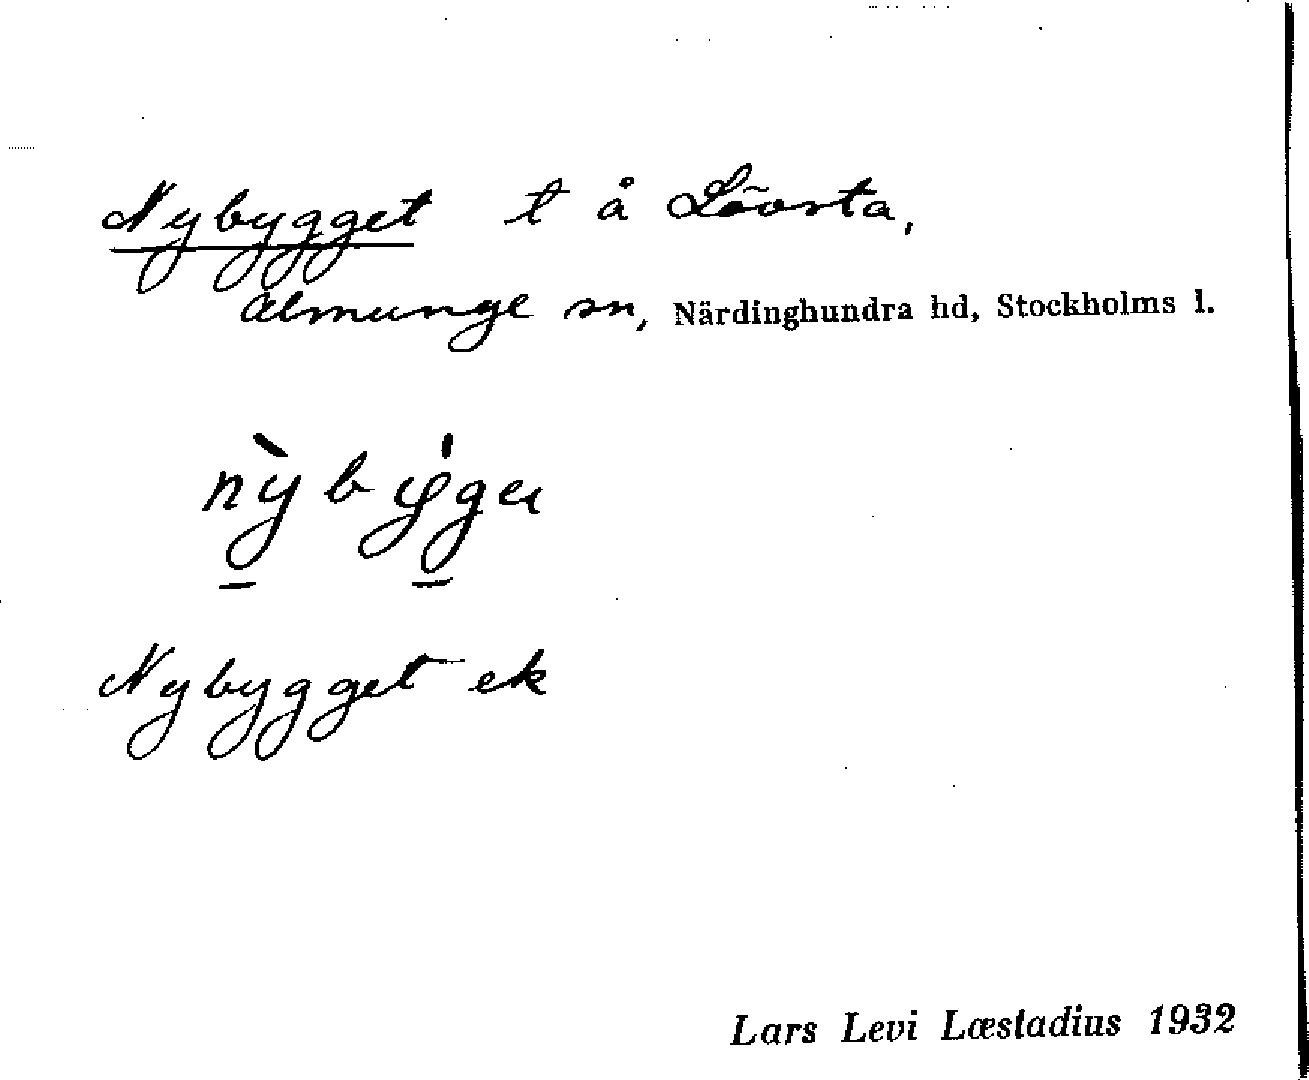 Nybygget t å Lövsta,
Almunge sn, Närdinghundra hd, Stockholms l.
Nybygget ek
Lars Levi Læstadius 1932